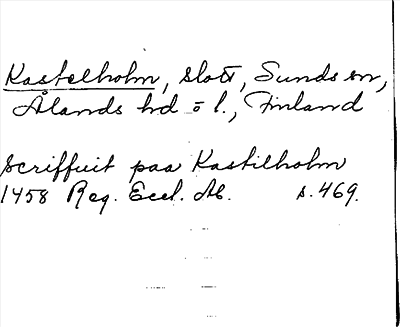 Kastelholm, slott, Sunds sn,
Ålands hd o l., Finland
Scriffuit paa Kastilholm
1458 Reg. Eccl. Ab. s. 469.